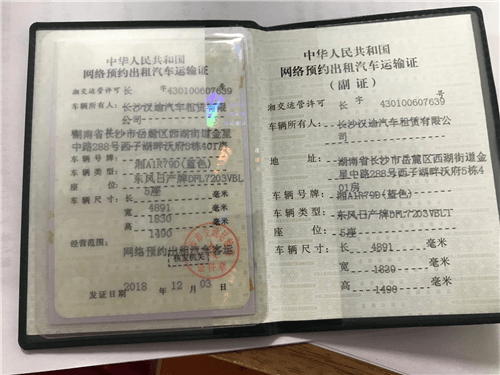 中华人民共和国
网络预约出租汽车运输证
湘交运管许可 长 字 号 430100607639
车辆所有人: 长沙汉渝汽车租赁有限
公司
湖南省长沙市岳麓区西湖街道金星
中路288号西子湖畔沃府5栋401房
车辆号牌: 湘A1R79D(蓝色)
车辆类型: 东风日产牌DFL7203VBL
5座
车辆尺寸: 长 4891 毫米
宽 1830 毫米
高 1490 毫米
经营范围: 网络预约出租汽车客运
核发机关
发证日期 2018 年 12 月 03 日
中华人民共和国
网络预约出租汽车运输证
(副证)
湘交运管许可 长 字 号 430100607639
车辆所有人: 长沙汉渝汽车租赁有限公
司
地 址: 湖南省长沙市岳麓区西湖街道金
星中路288号西子湖畔沃府5栋4
01房
车辆号牌: 湘A1R79D(蓝色)
车辆类型: 东风日产牌DFL7203VBLT
5座
车辆尺寸: 长 4891 毫米
宽 1830 毫米
高 1490 毫米